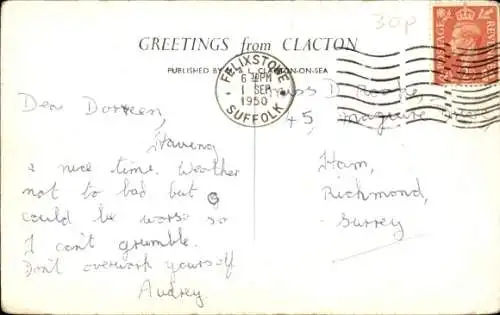 30p
GREETINGS from CLACTON
PUBLISHED BY L. CLACTON-ON-SEA
FELIXSTOWE
6 PM
1 SEP
1950
SUFFOLK
POSTAGE
REVENUE
Dear Doreen,
Having
a nice time. Weather
not to bad but
could be worse so
I can't grumble.
Don't overwork yourself
Audrey.
Miss D
45, Maguire
Ham,
Richmond,
Surrey